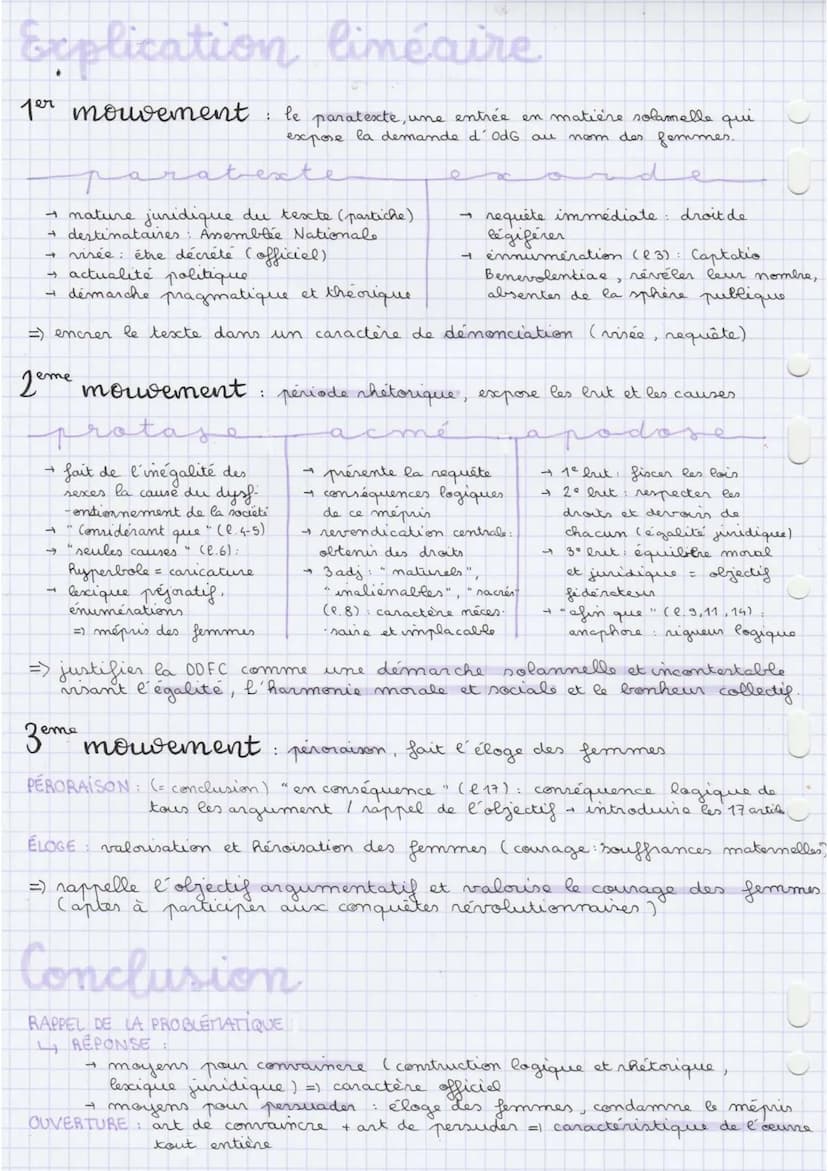 Explication linéaire
1er mouvement : le paratexte, une entrée en matière solamelle qui
expose la demande d'OdG au nom des femmes.
paratexte
→ nature juridique du texte (partiche)
→ destinataires : Assemblée Nationale
→ visée : être décrété (officiel)
→ actualité politique
→ démarche pragmatique et théorique
exorde
→ requête immédiate : droit de
légiférer
→ énnumération (l 3) : Captatio
Benevolentiae, révéler leur nombre,
absentes de la sphère publique
=> encrer le texte dans un caractère de dénonciation (visée, requête)
2eme mouvement : période rhétorique, expose les but et les causes
protase
→ fait de l'inégalité des
sexes la cause du dysf-
-onctionnement de la société
→ "Considérant que" (l. 4-5)
→ "seules causes" (l. 6) :
Hyperbole = caricature
→ lexique péjoratif,
énumérations
=> mépris des femmes
acmé
→ présente la requête
→ conséquences logiques
de ce mépris
→ revendication centrale :
obtenir des droits
→ 3 adj : "naturels",
"inaliénables", "sacrés"
(l. 8) : caractère néces-
saire et implacable
apodose
→ 1e but : fixer les lois
→ 2e but : respecter les
droits et devoirs de
chacun (égalité juridique)
→ 3e but : équilibre moral
et juridique = objectif
fédérateur
→ "afin que" (l. 9, 11, 14) :
anaphore : rigueur logique
=> justifier la DDFC comme une démarche solannelle et incontestable
visant l'égalité, l'harmonie morale et sociale et le bonheur collectif.
3eme mouvement : péroraison, fait l'éloge des femmes
PÉRORAISON : (= conclusion) "en conséquence" (l 17) : conséquence logique de
tous les argument / rappel de l'objectif → introduire les 17 article
ÉLOGE : valorisation et héroïsation des femmes (courage : souffrances maternelles)
=> rappelle l'objectif argumentatif et valorise le courage des femmes
(aptes à participer aux conquêtes révolutionnaires)
Conclusion
RAPPEL DE LA PROBLÉMATIQUE
↳ RÉPONSE :
→ moyens pour convaincre (construction logique et rhétorique,
lexique juridique) => caractère officiel
→ moyens pour persuader : éloge des femmes, condamne le mépris
OUVERTURE : art de convaincre + art de persuder => caractéristique de l'œuvre
tout entière